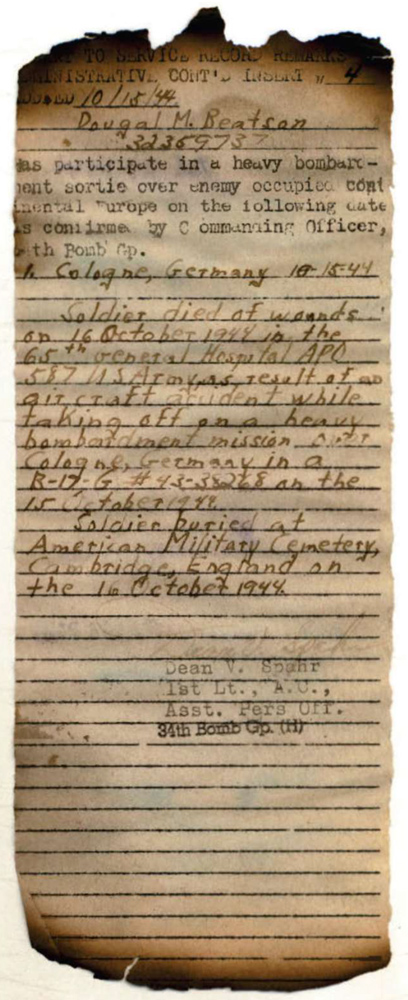 TO SERVICE RECORD REMARKS
CONT'D INSERT # 4
10/15/44
Dougal M. Beatson
32359737
as participate in a heavy bombard-
ent sortie over enemy occupied cont
inental Europe on the following date
s confirmed by Commanding Officer,
th Bomb Gp.
1. Cologne, Germany 10-15-44
Soldier died of wounds
on 16 October 1944 in the
65th General Hospital APO
587 US Army, as result of an
aircraft accident while
taking off on a heavy
bombardment mission over
Cologne, Germany in a
B-17-G #43-38268 on the
15 October 1944.
Soldier buried at
American Military Cemetery,
Cambridge, England on
the 16 October 1944.
Dean V. Spahr
1st Lt., A.C.,
Asst. Pers Off.
34th Bomb Gp. (H)